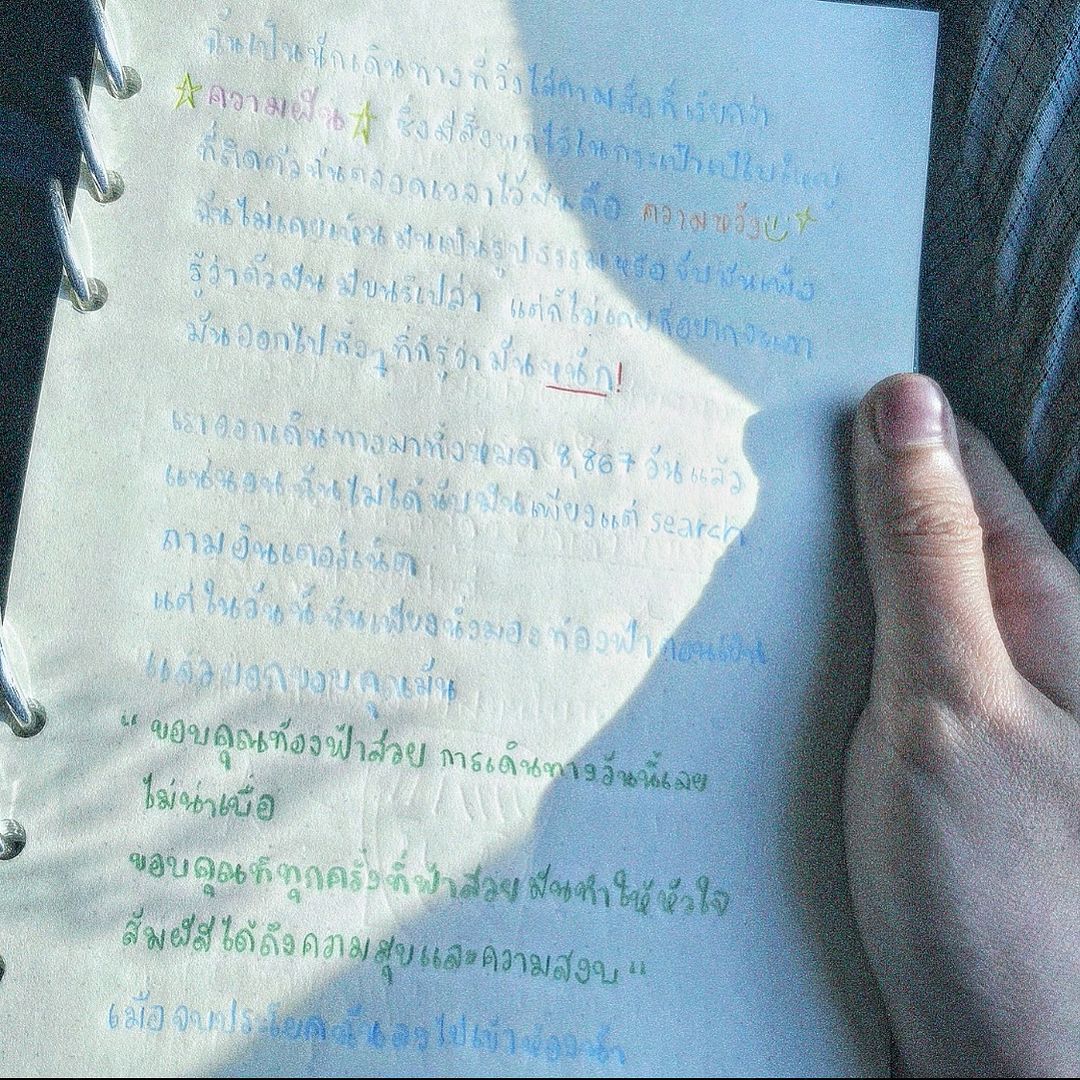 ฉันเป็นนักเดินทางที่วิ่งไล่ตามสิ่งที่เรียกว่า
☆ความฝัน☆ ซึ่งมีสิ่งพกไว้ในกระเป๋าเป้ใบใหญ่
ที่ติดตัวฉันตลอดเวลาไว้มันคือ ความหวัง
ฉันไม่เคยเห็นมันเป็นรูปธรรมหรือจับมันเพื่อ
รู้ว่าตัวมันมีขนรึเปล่า แต่ก็ไม่เคยที่อยากจะเอา
มันออกไปทั้งๆที่ก็รู้ว่ามันหนัก!
เราออกเดินทางมาทั้งหมด 8,867 วันแล้ว
แน่นอนฉันไม่ได้นับมันเพียงแต่ search
ถามอินเตอร์เน็ต
แต่ในวันนี้ฉันเพียงนั่งมองท้องฟ้าตอนเย็น
แล้วบอกขอบคุณมัน
"ขอบคุณท้องฟ้าสวย การเดินทางวันนี้เลย
ไม่น่าเบื่อ
ขอบคุณที่ทุกครั้งที่ฟ้าสวยมันทำให้หัวใจ
สัมผัสได้ถึงความสุขและความสงบ"
เมื่อจบประโยคนั้นลงไปเข้าห้องน้ำ